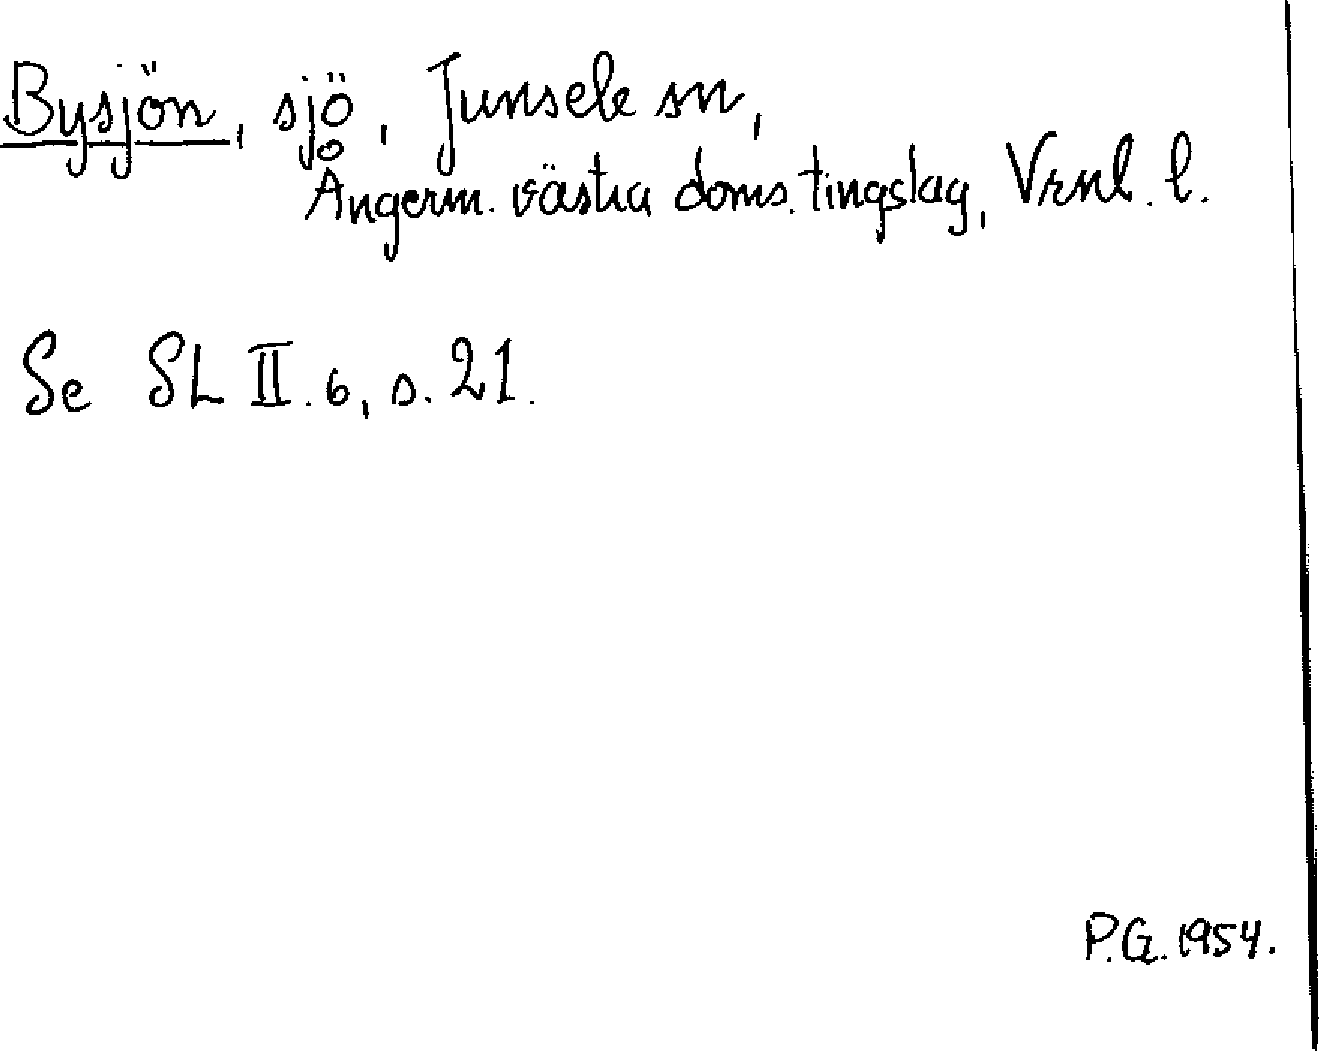 Bysjön, sjö, Junsele sn,
Ångerm. västra doms. tingslag, Vrnl. l.
Se SL II.6, s. 21.
P.G. 1954.